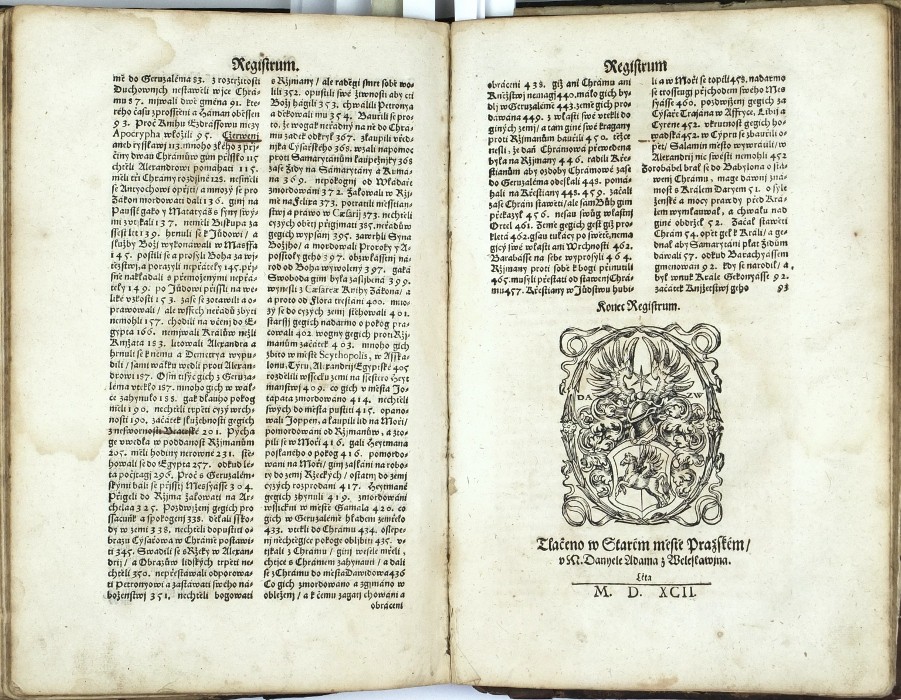 Registrum.
mě do Geruzaléma 83. z roztržitosti
Duchownych nestawěli wjce Chrá-
mu 87. mjwali dwě gména 91. kte-
rého času zprosstěni a Háman oběssen
93. Proč Knihu Ezdrássowu mezy
Apocrypha wložili 95. Czerweni
aneb ryssawj 113. mnoho zlého z přj-
činy dwau Chrámůw gim přisslo 115
chtěli Alexandrowi pomáhati 115.
měli tři Chrámy rozdjlné 125. nesměli
se Antyochowi opřjti / a mnozý se pro
Zákon mordowati dali 136. ginj na
Paussť gako y Matatyáss s syny swý-
mi utjkali 137. neměli Biskupa za
ssest let 139. hrnuli se k Jůdowi / a
službu Božj wykonáwali w Masffa
145. postili se a prosyli Boha za wj-
tězstwj, a porazyli nepřátely 145. přj-
sně nakládali s přemoženými nepřá-
tely 149. po Jůdowi přissli na we-
liké wzkosti 153. zase se zotawili a o-
prawowali / ale wssech neřádů zbyti
nemohli 157. chodili na včenj do E-
gypta 166. nemjwali Králůw nežli
Knjžata 183. litowali Alexandra a
hrnuli se k němu a Demetrya wypu-
dili / sami walku wedli proti Alexan-
drowi 187. Osm tisýc gich z Geruza-
léma vteklo 187. mnoho gich w wál-
ce zahynulo 188. gak dlauho pokog
měli 190. nechtěli trpěti cyzý wrch-
nosti 190. začátek služebnosti gegich
z nesworností Bratrské 201. Pýcha
ge vwedla w poddanost Řjmanům
205. měli hodiny nerowné 231. stě-
howali se do Egypta 257. odkud lé-
ta počjtagj 296. Proč s Geruzalém-
skými dali se přjsstj Messyásse 304.
Přigeli do Řjma žalowati na Ar-
chelaa 325. Pozdwiženj gegich pro
ssacuňk a spokogenj 338. dékali ssko-
dy w zemi 338. nechtěli dopustiti o-
brazu Cýsařowa w Chrámě postawi-
ti 345. Swadili se s Řeky w Alexan-
drij / a Obrazůw lidských trpěti ne-
chtěli 350. nepřestáwali odporowa-
ti Petronyowi a zastáwati swého ná-
boženstwj 351. nechtěli bogowati
s Řjmany / ale raděgi smrt sobě wo-
lili 352. opustili swé žiwnosti aby cti
Božj hágili 353. chwálili Petronya
a děkowali mu 354. Bauřili se pro-
to, že wogák neřádný na ně do Chrá-
mu zadek odkryl 367. zlaupili vřed-
njka Cýsařského 368. wzali nápomoc
proti Samarytánům laupežnjky 368
zase Židy na Samarytány a Kumá-
na 369. nepokogni od Wladaře
zmordowáni 372. žalowali w Řjj-
mě na Felixa 373. potratili měsstian-
stwj a práwo w Cæsárij 373. nechtěli
cyzých obětj přigjmati 385. neřádůw
gegich wypsánj 395. zawrhli Syna
Božjho / a mordowali Proroky y A-
posstoly geho 397. obzwlásstnj ná-
rod od Boha wywolený 397. gaká
Swoboda gim byla zaslíbená 399.
wynesli z Cæsárex Knihy Zákona / a
a proto od Flora trestáni 400. mno-
zý se do cyzých zemj stěhowali 401.
starssj gegich nadarmo o pokog pra-
cowali 402. wogny gegich proti Řjj-
manům začátek 403. mnoho gich
zbito w městě Scythopolis, w Asska-
lonu, Tyru, Alexandrij Egyptské 405
rozdělili wssecku zemi na ssestero Heyt-
manstwj 409. co gich v města Jo-
tapata zmordowáno 414. nechtěli
swých do města pustiti 415. opano-
wali Joppen, a laupili lid na Moři /
pomordowáni od Řjmanůw, a zto-
pili se w Moři 416. gali Heytmana
poslaného o pokog 416. pomordo-
wáni na Moři / ginj zasláni na robo-
ty do zemj Řeckých / ostatnj do zemj
cyzých rozprodáni 417. Heytmané
gegich zhynuli 419. zmordowáni
wssickni w městě Gamala 420. co
gich w Geruzalémě hladem zemřelo
433. vtekli do Chrámu 434. oslepe-
nj nechtěgjce pokoge obljbiti 435. v-
tjkali z Chrámu / ginj wesele měli,
chtjce s Chrámem zahynauti / a dali
se z Chrámu do města Dawidowa 436
Co gich zmordowáno a zgjmáno w
obleženj / a k čemu zagatj chowáni a
obráceni
Registrum
obráceni 438. giž ani Chrámu ani
Knjžstwj nemagj 440. málo gich by-
dlj w Geruzalémě 443. země gich pro-
dáwána 449. z wlasti swé vtekli do
giných zemj / a tam giné kragany
proti Řjmanům bauřili 450. těžce
nesli / že daň Chrámowá přewedena
byla na Řjmany 446. radili Kře-
stianům aby ozdoby Chrámowé zase
do Geruzaléma odeslali 448. pomá-
hali na Křestiany 448. 459. začali
zase Chrám stawěti / ale sám Bůh gim
překazyl 456. nesau swůg wlastnj
Ortel 461. Země gegich gest giž pro-
kletá 462. gsau tuláćy po swětě, nema
gjcý swé wlasti ani Wrchnosti 462.
Barabásse na sebe wyprosyli 464.
Řjmany proti sobě k bogi přinutili
465. musyli přestati od stawěnj Chrá-
mu 457. Křestiany w Jůdstwu hubi-
li a w Moři se topili 458. nadarmo
se trosstugj přjchodem swého Mes-
syásse 460. pozdwiženj gegich za
Cýsaře Trajána w Affryce, Libij a
Cyrene 452. vkrutnost gegich ho-
wadská 452. w Cypru se zbauřili o-
pět / Salamin město wywrátili / w
Alexandrij nic swésti nemohli 452
Zorobábel bral se do Babylona o sta-
wenj Chrámu, mage dáwnj zná-
most s Králem Daryem 51. o sýle
ženské a mocy prawdy před Krá-
lem wymlauwal, a chwálu nad
giné obdržel 52. Začal stawěti
Chrám 54. opět gel k Králi / a ge-
dnal aby Samarytáni plat Židům
dáwali 57. odkud Barachyássem
gmenowán 92. kdy se narodil / a
byl wnuk Krále Gekonyásse 92.
začátek Knjžetstwj geho 93
Konec Registrum.
DA ZW
Tlačeno w Starém městě Pražském /
v M. Danyele Adama z Weleslawjna.
Léta
M. D. XCII.